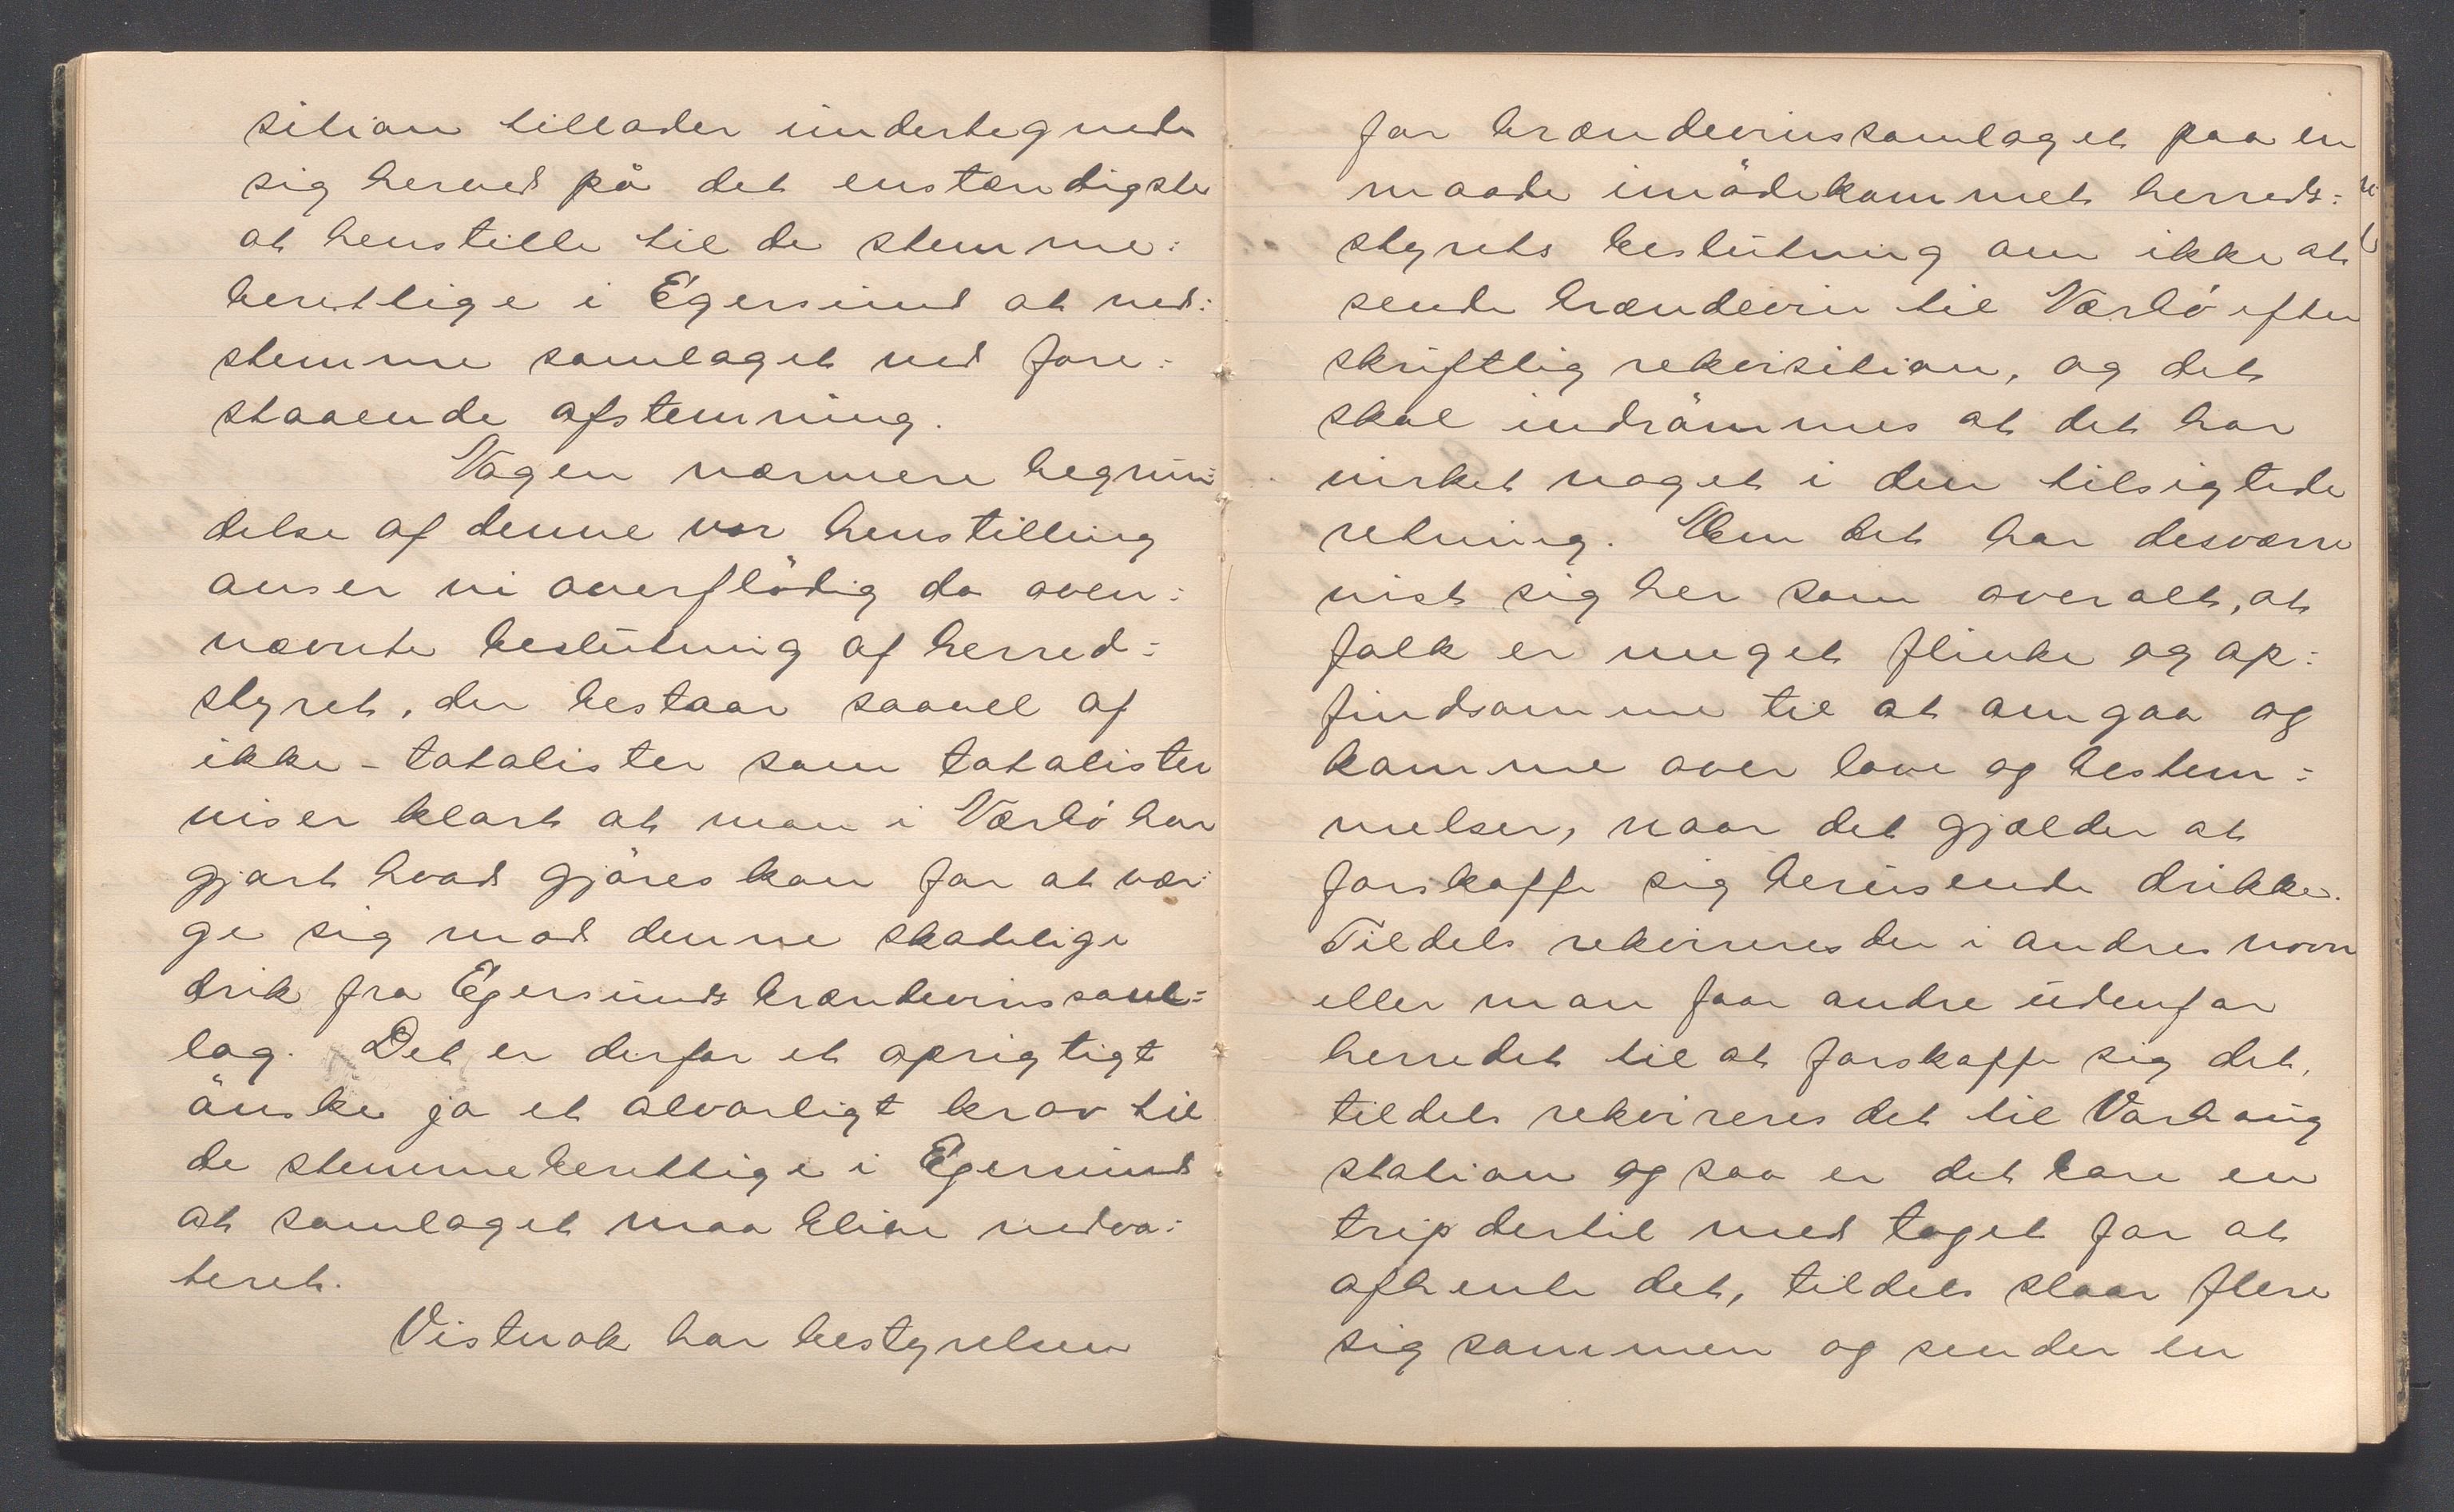 sition tillader undertegnede
sig herved på det enstændigste
at henstille til de stemme:
berettige i Egersund at ned:
stemme samlaget ved fore:
staaende afstemning.
Nogen nærmere begrun:
delse af denne vor henstilling
anser vi overflödig da oven:
nævnte beslutning af herred:
styret, der bestaar saavel af
ikke-totalister som totalister
viser klart at man i Nærbö har
gjort hvad gjöres kan for at vær:
ge sig mod denne skadelige
drik fra Egersunds brændevinssam:
lag. Det er derfor et oprigtigt
önske ja et alvorligt krav til
de stemmeberettige i Egersund
at samlaget maa blive nedvo:
teret.
Vistnok har bestyrelsen
for brændevinssamlaget paa en
maade imödekommet herreds:
styrets beslutning om ikke at
sende brændevin til Nærbö efter
skriftlig rekvisition, og det
skal indrömmes at det har
virket noget i den tilsigtede
retning. Men det har desværre
vist sig her som overalt, at
folk er meget flinke og op:
findsomme til at omgaa og
komme over love og bestem:
melser, naar det gjælder at
forskaffe sig berusende drikke.
Tildels rekvireres der i andres navn
eller man faar andre udenfor
herredet til at forskaffe sig det,
tildels rekvireres det til Varhaug
station og saa er det bare en
trip dertil med toget for at
afhente det, tildels slaar flere
sig sammen og sender en